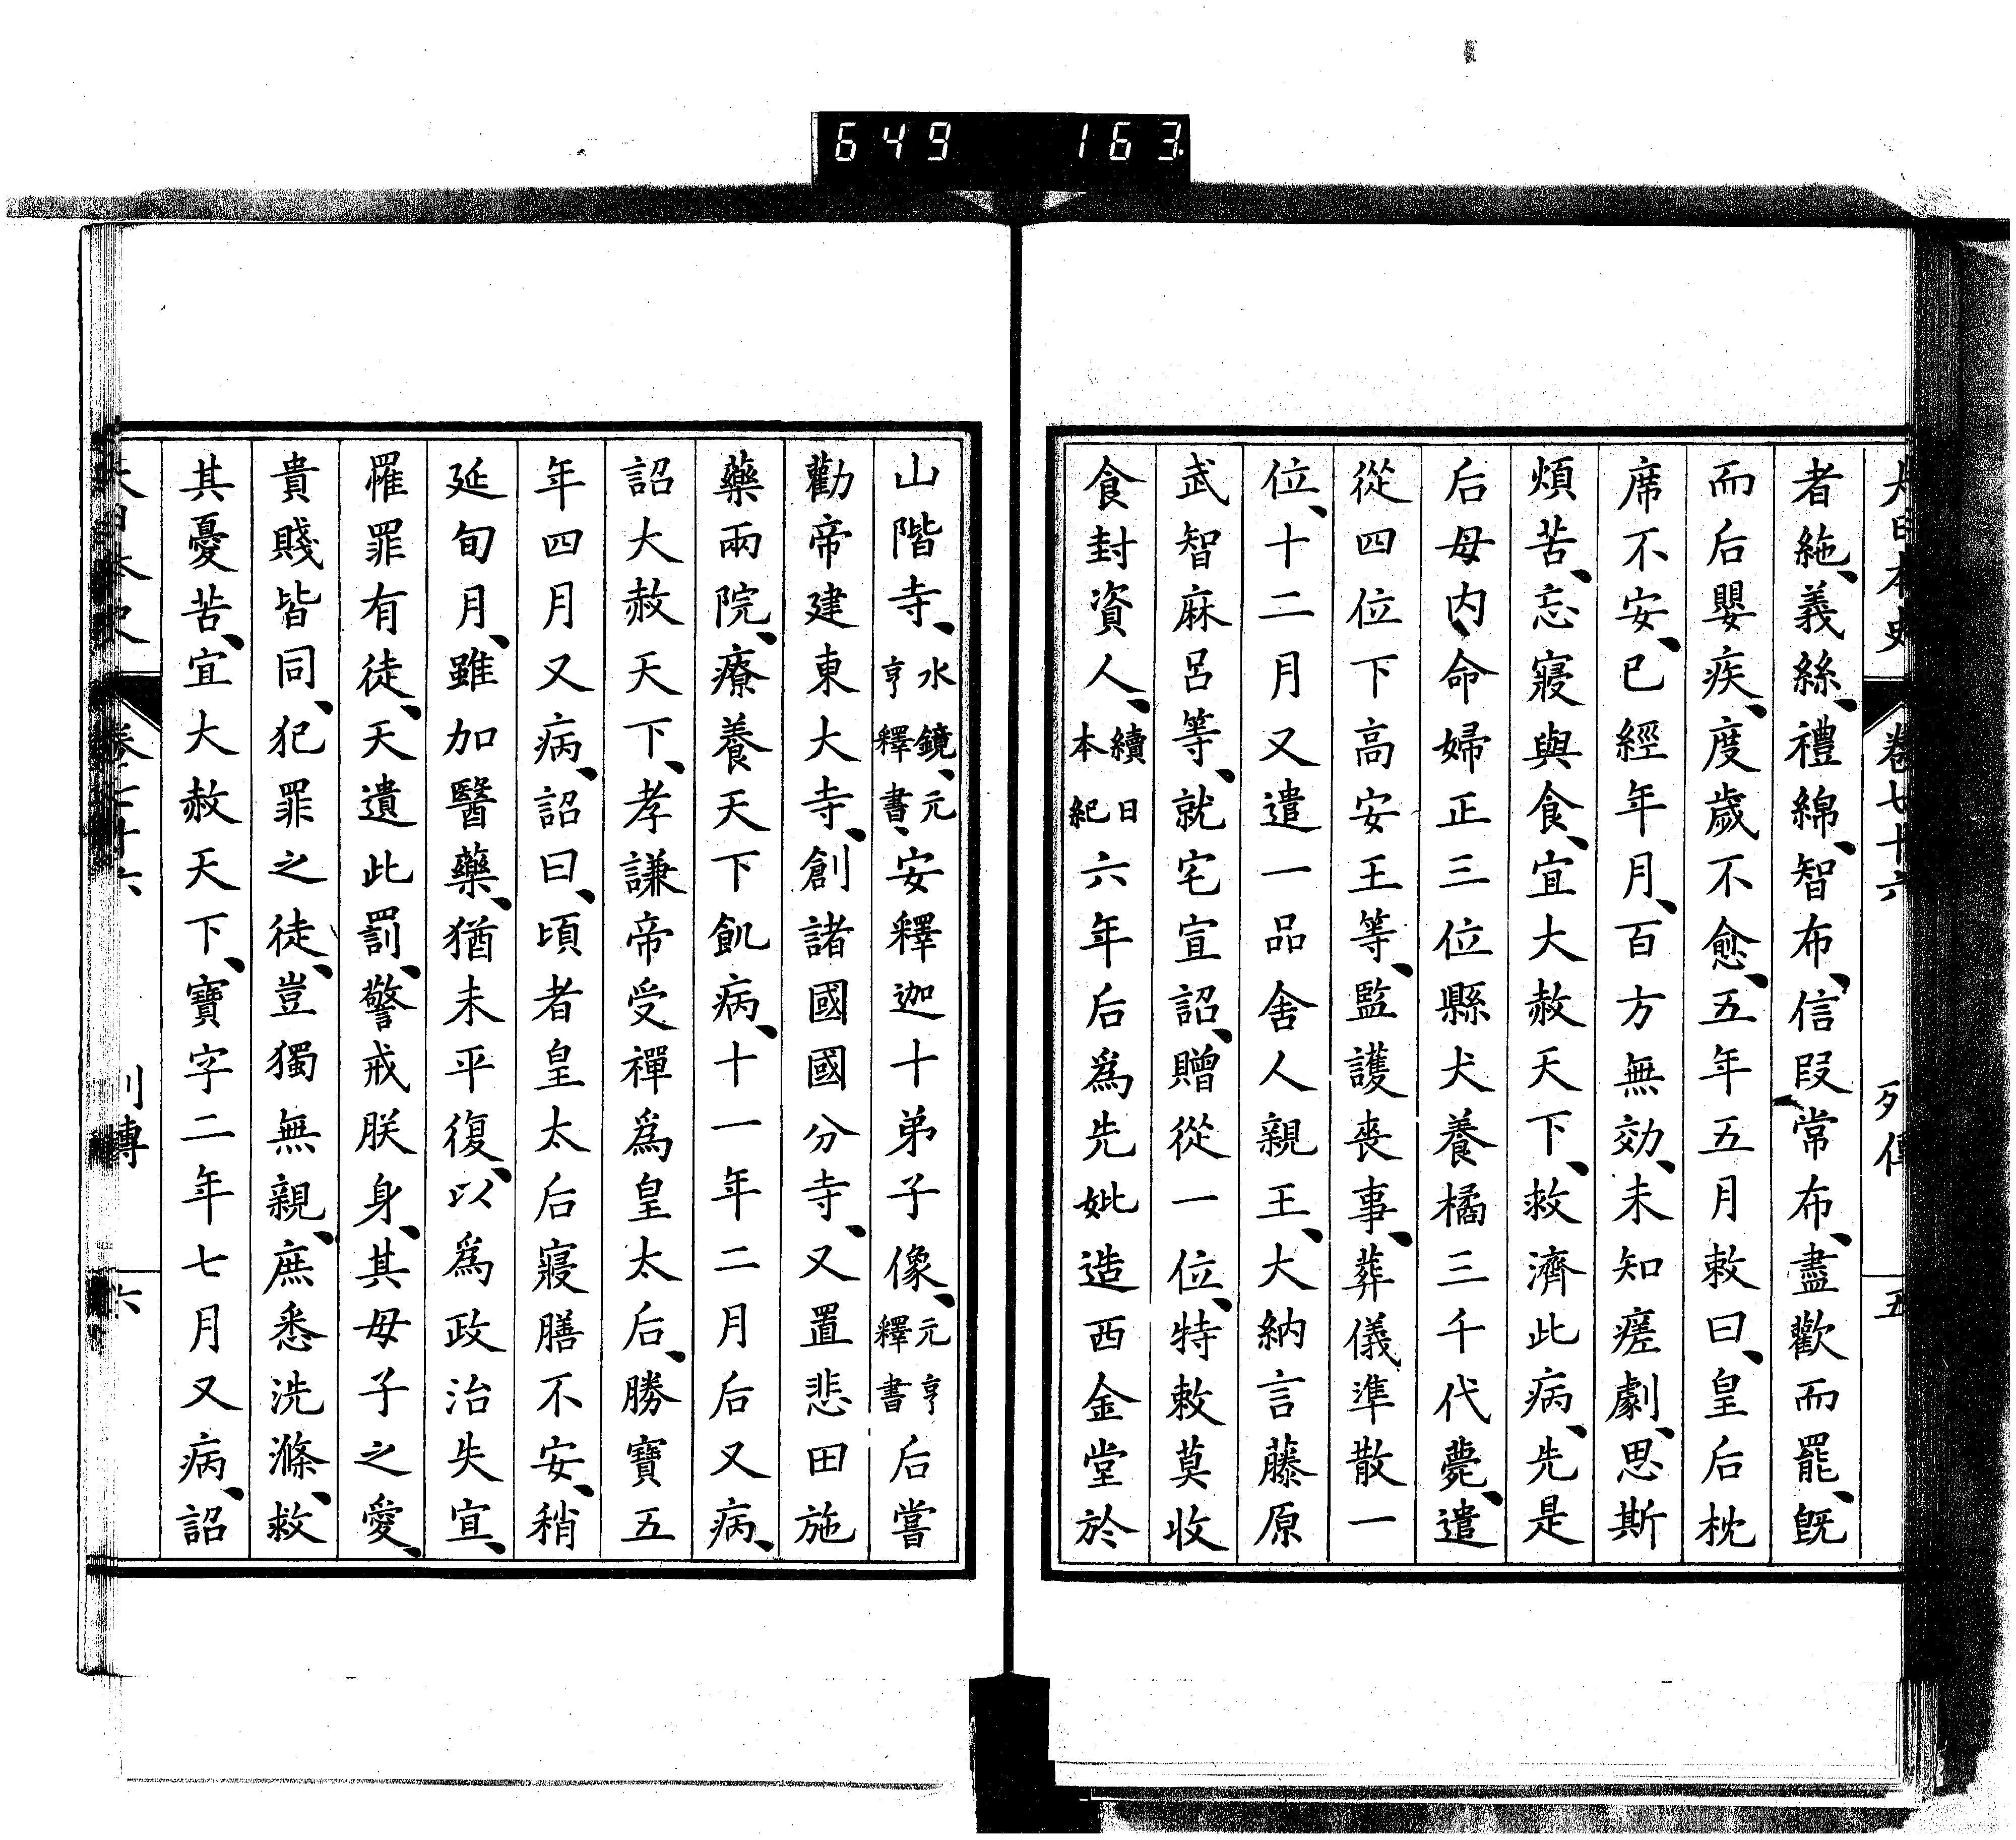 649 163
大日本史 卷七十六 列傳 五
者絁、義絲、禮綿、智布、信段常布、盡歡而罷、既
而后嬰疾、度歲不愈、五年五月敕曰、皇后枕
席不安、已經年月、百方無効、未知瘥劇、思斯
煩苦、忘寢與食、宜大赦天下、救濟此病、先是
后母内命婦正三位縣犬養橘三千代薨、遣
從四位下高安王等、監護喪事、葬儀準散一
位、十二月又遣一品舍人親王、大納言藤原
武智麻呂等、就宅宣詔、贈從一位、特敕莫收
食封資人、續日本紀六年后為先妣造西金堂於
山階寺、水鏡、元亨釋書、安釋迦十弟子像、元亨釋書后嘗
勸帝建東大寺、創諸國國分寺、又置悲田施
藥兩院、療養天下飢病、十一年二月后又病、
詔大赦天下、孝謙帝受禪爲皇太后、勝寶五
年四月又病、詔曰、頃者皇太后寢膳不安、稍
延旬月、雖加醫藥、猶未平復、以爲政治失宜、
罹罪有徒、天遺此罰、警戒朕身、其母子之愛、
貴賤皆同、犯罪之徒、豈獨無親、庶悉洗滌、救
其憂苦、宜大赦天下、寶字二年七月又病、詔
大日本史 卷七十六 列傳 六